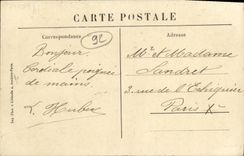 CARTE POSTALE
Correspondance
Adresse
92
Bonjour
Cordiale poignée
de mains
L. Hubert
Mr et Madame
Landret
3 rue de l'Echiquier
Paris X